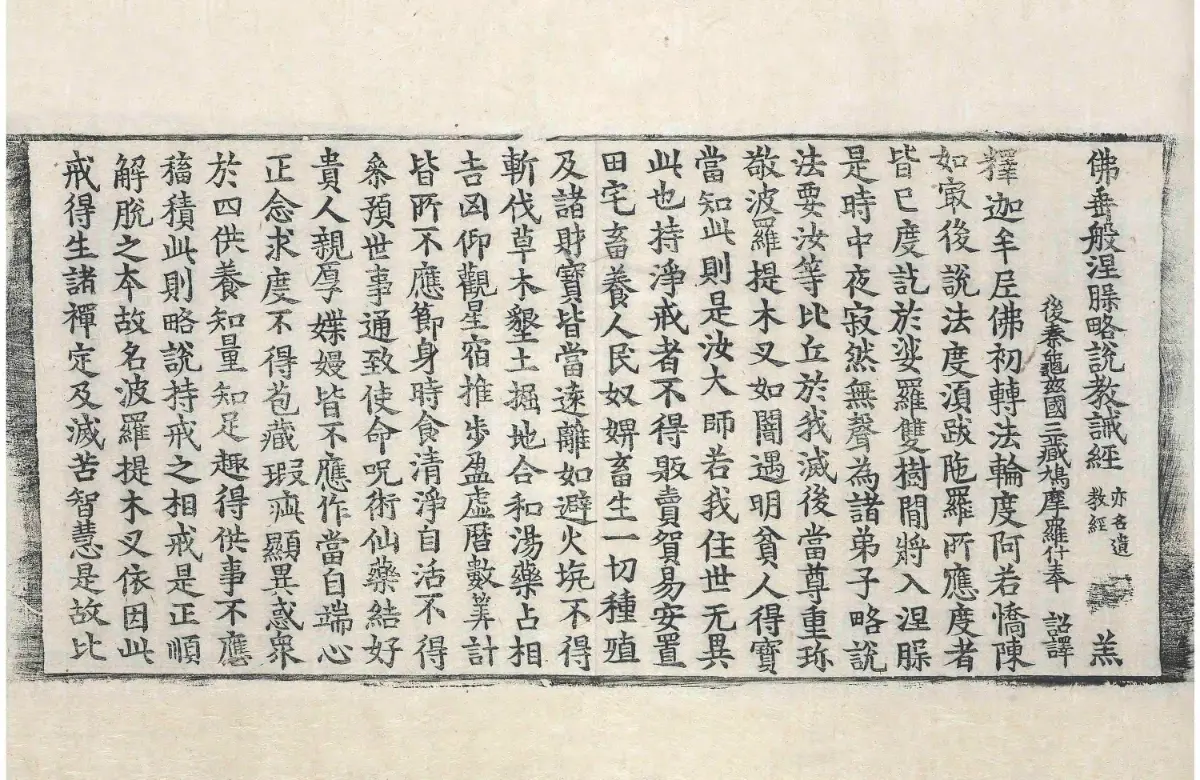 佛垂般涅槃略說教誡經 亦名遺教經 羔
後秦龜茲國三藏鳩摩羅什奉 詔譯
釋迦牟尼佛初轉法輪度阿若憍陳
如㝡後說法度湏跋陁羅所應度者
皆已度訖於娑羅雙樹間將入涅槃
是時中夜寂然無聲為諸弟子略說
法要汝等比丘於我滅後當尊重珎
敬波羅提木叉如闇遇明貧人得寶
當知此則是汝大師若我住世无異
此也持淨戒者不得販賣貿易安置
田宅畜養人民奴婢畜生一切種殖
及諸財寶皆當遠離如避火坑不得
斬伐草木墾土掘地合和湯藥占相
吉凶仰觀星宿推步盈虛曆數筭計
皆所不應節身時食清淨自活不得
叅預世事通致使命呪術仙藥結好
貴人親厚媟嫚皆不應作當自端心
正念求度不得苞藏瑕疵顯異惑衆
於四供養知量知足趣得供事不應
稸積此則略說持戒之相戒是正順
解脫之本故名波羅提木叉依因此
戒得生諸禪定及滅苦智慧是故比